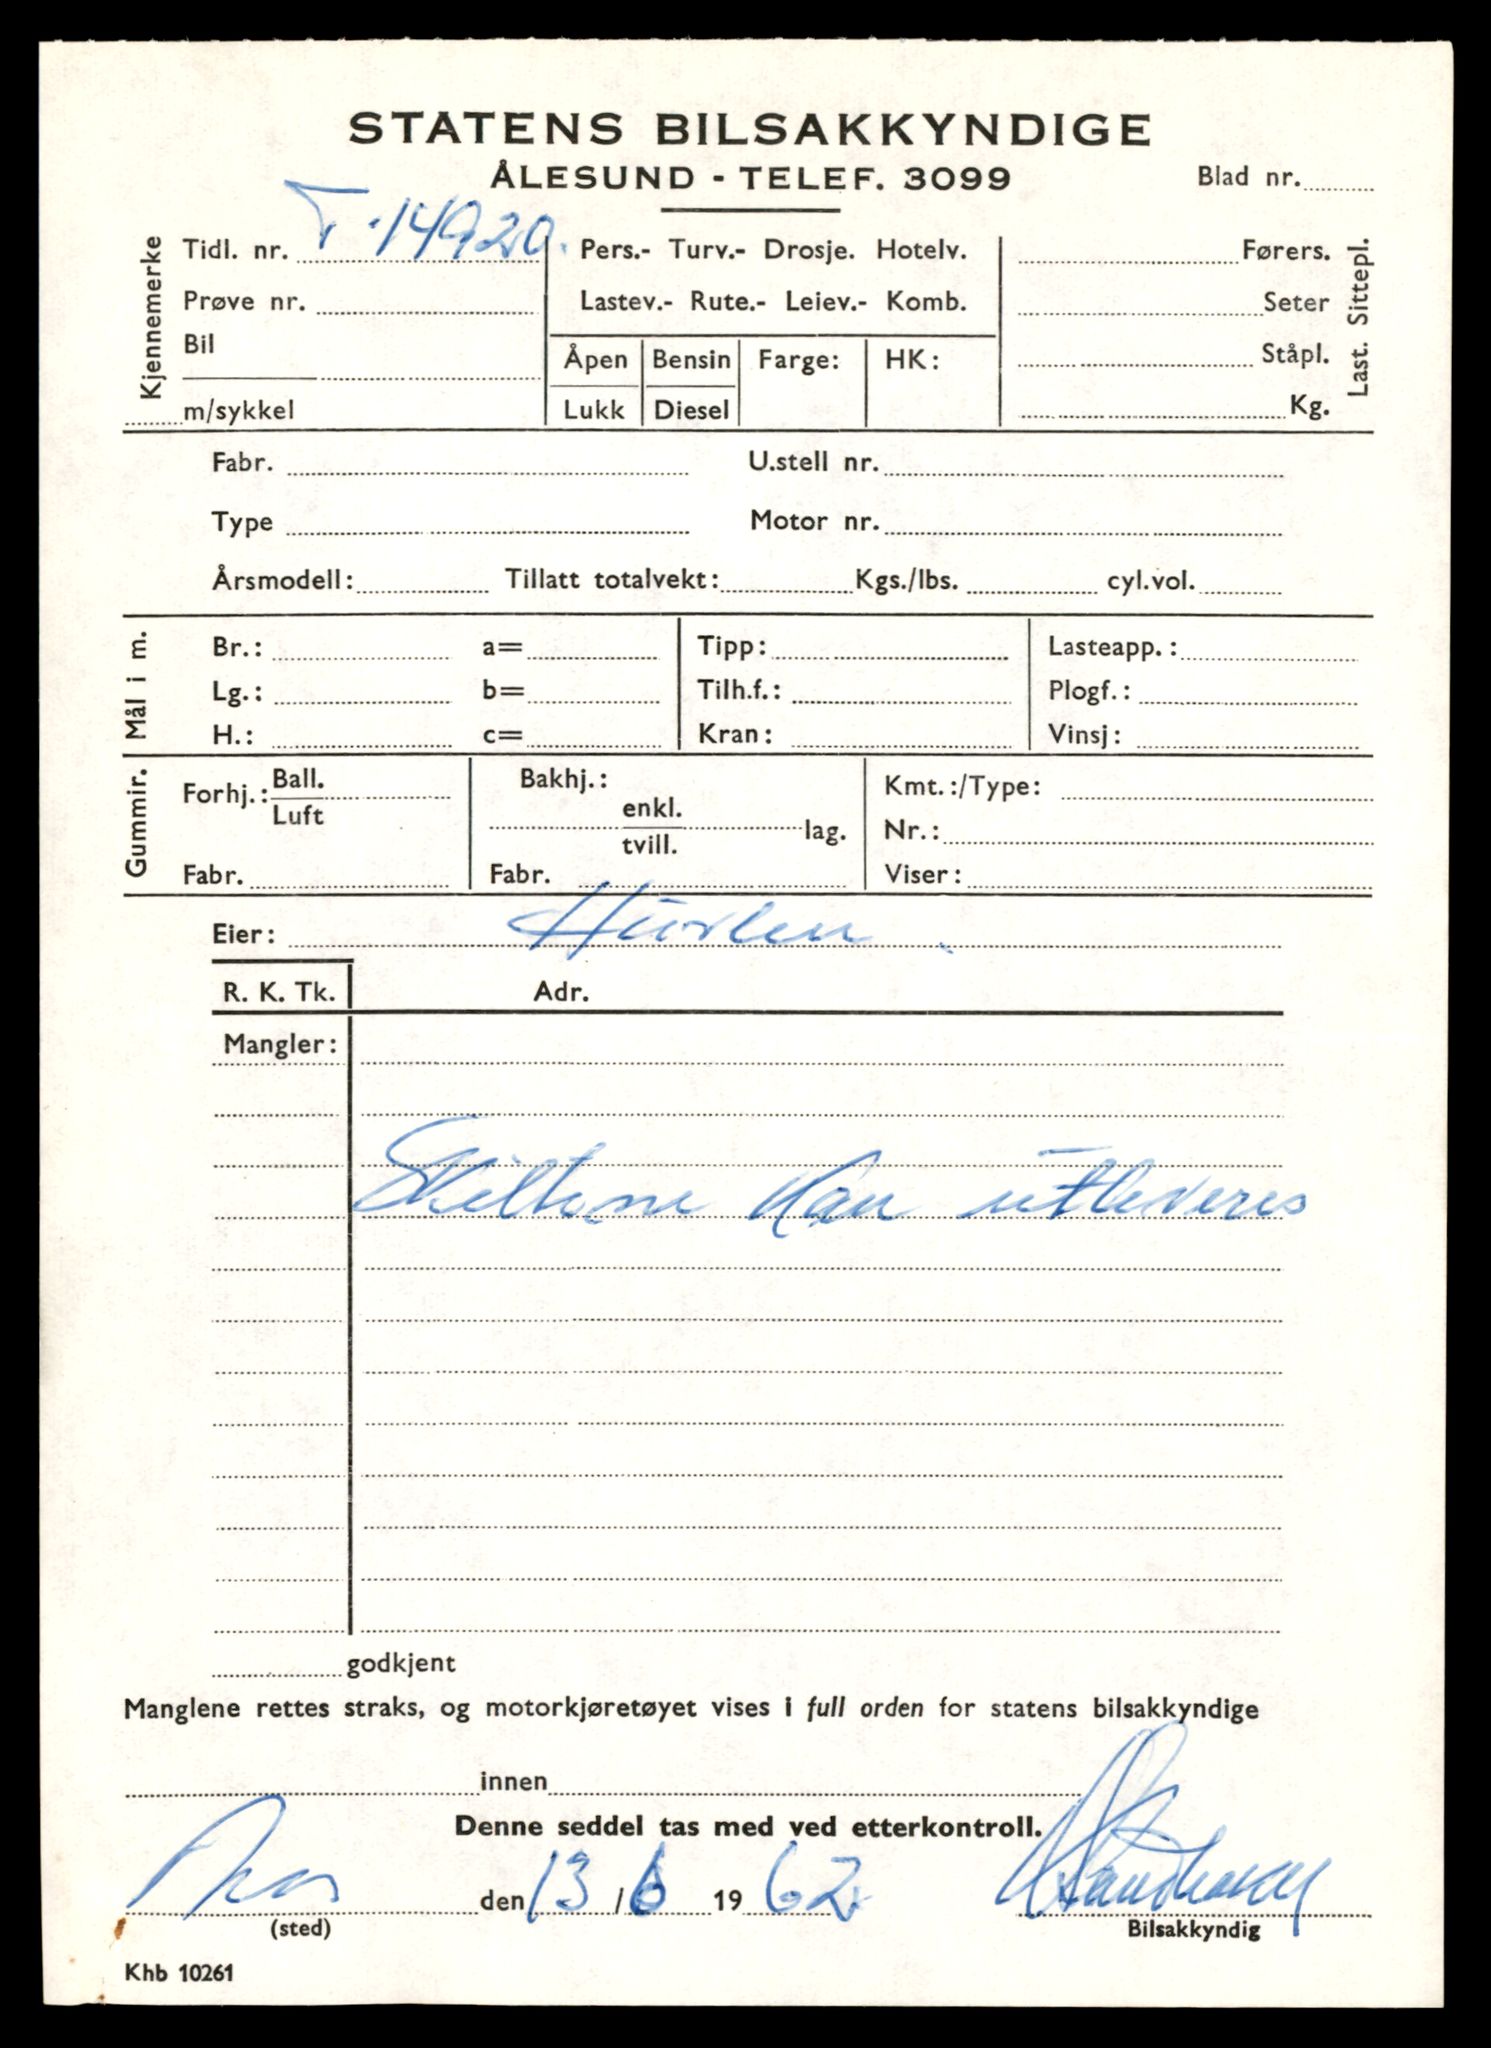 STATENS BILSAKKYNDIGE
ÅLESUND - TELEF. 3099
Blad nr.
Kjennemerke
Tidl. nr. T-14920.
Prøve nr.
Bil
m/sykkel
Pers.- Turv.- Drosje. Hotelv.
Lastev.- Rute.- Leiev.- Komb.
Åpen
Lukk
Bensin
Diesel
Farge:
HK:
Førers.
Seter
Ståpl.
Kg.
Last. Sittepl.
Fabr.
U.stell nr.
Type
Motor nr.
Årsmodell: Tillatt totalvekt: Kgs./lbs. cyl.vol.
Mål i m.
Br.: a=
Lg.: b=
H.: c=
Tipp:
Tilh.f.:
Kran:
Lasteapp.:
Plogf.:
Vinsj:
Gummir.
Forhj.: Ball.
Luft
Fabr.
Bakhj.:
enkl.
tvill. lag.
Fabr.
Kmt.:/Type:
Nr.:
Viser:
Eier:
R. K. Tk. Adr.
Mangler:
Skiltene kan utleveres
godkjent
Manglene rettes straks, og motorkjøretøyet vises i full orden for statens bilsakkyndige
innen
Denne seddel tas med ved etterkontroll.
den 13/6 1962
(sted)
Bilsakkyndig
Khb 10261